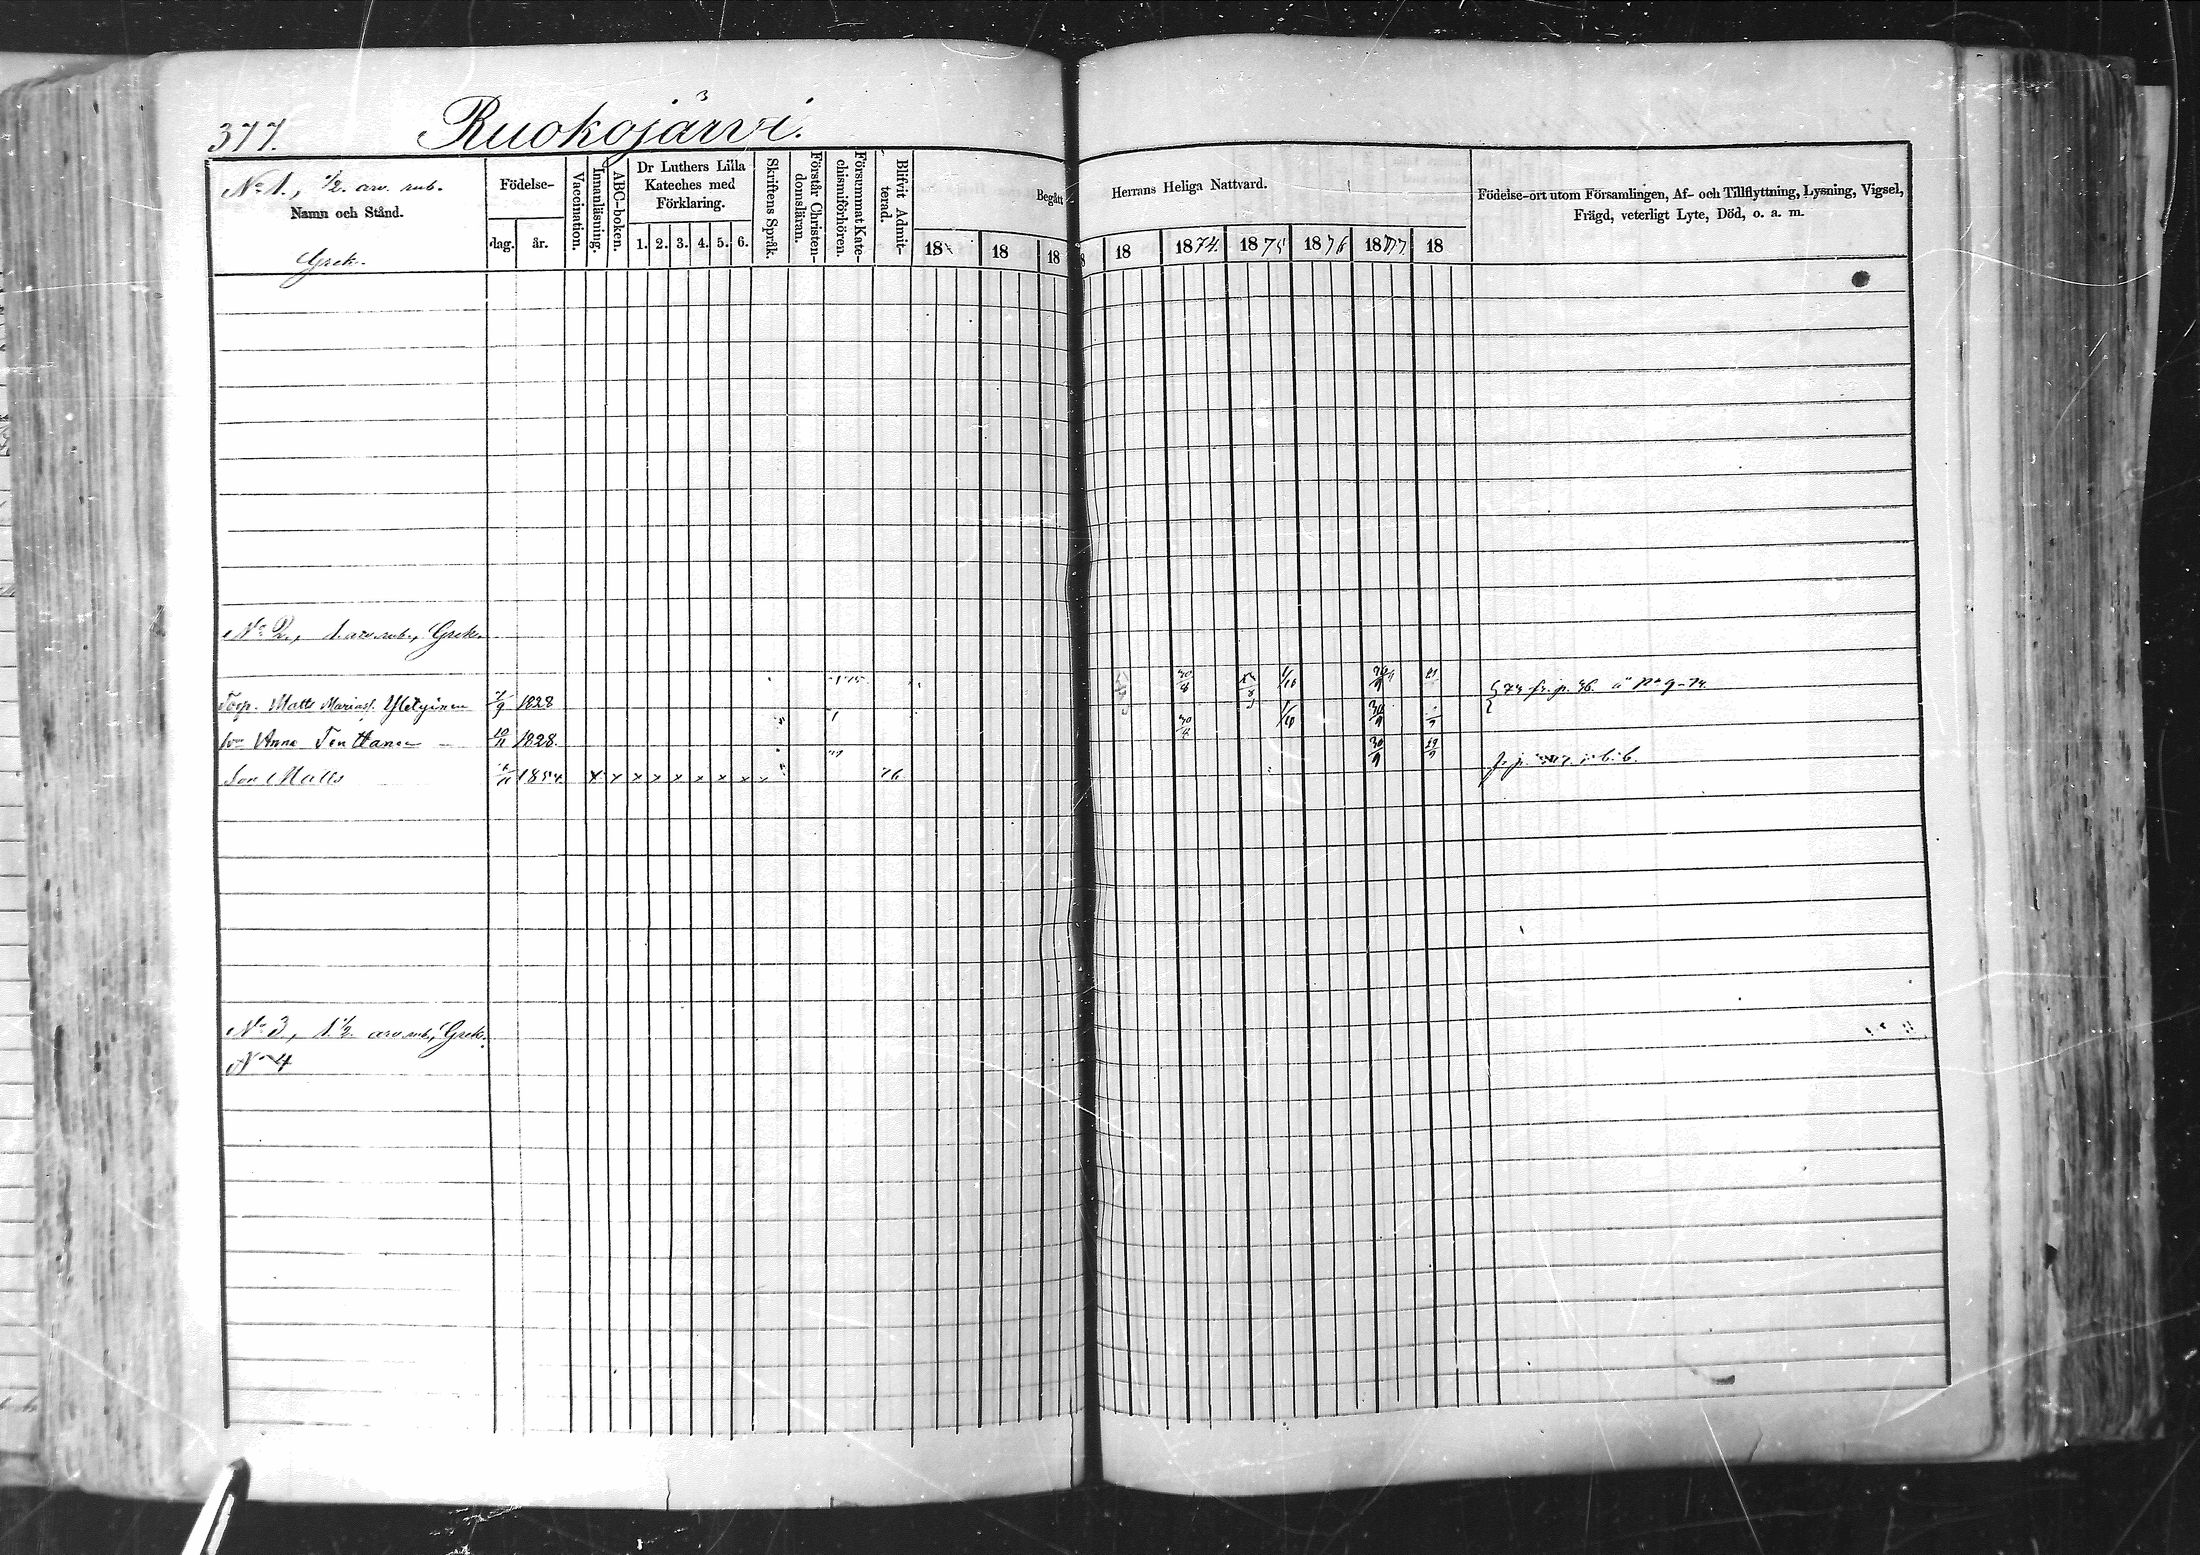 377.
Ruokojärvi.
No 1., 1/2. arv. rub.
Namn och Stånd.
Grek.
Födelse-
dag. år.
Vaccination.
Innanläsning.
ABC-boken.
Dr Luthers Lilla
Kateches med
Förklaring.
1. 2. 3. 4. 5. 6.
Skriftens Språk.
Förstår Christen-
domsläran.
Försummat Kate-
chismiförhören.
Blifvit Admit-
terad.
Begått Herrans Heliga Nattvard.
18 18 18 18 1874. 1875 1876 1877. 18
Födelse-ort utom Församlingen, Af- och Tillflyttning, Lysning, Vigsel,
Frägd, veterligt Lyte, Död, o. a. m.
No 2., 1. arv. rub., Grek.
Torp. Matts 1828 30/8 1/10
hu Anna 10/11 1828. 1/10 30/9
Son Matts 1854 x x x x x x x x x 76 30/9 29/9
No 3, 1 1/2. arv. rub., Grek.
No 4